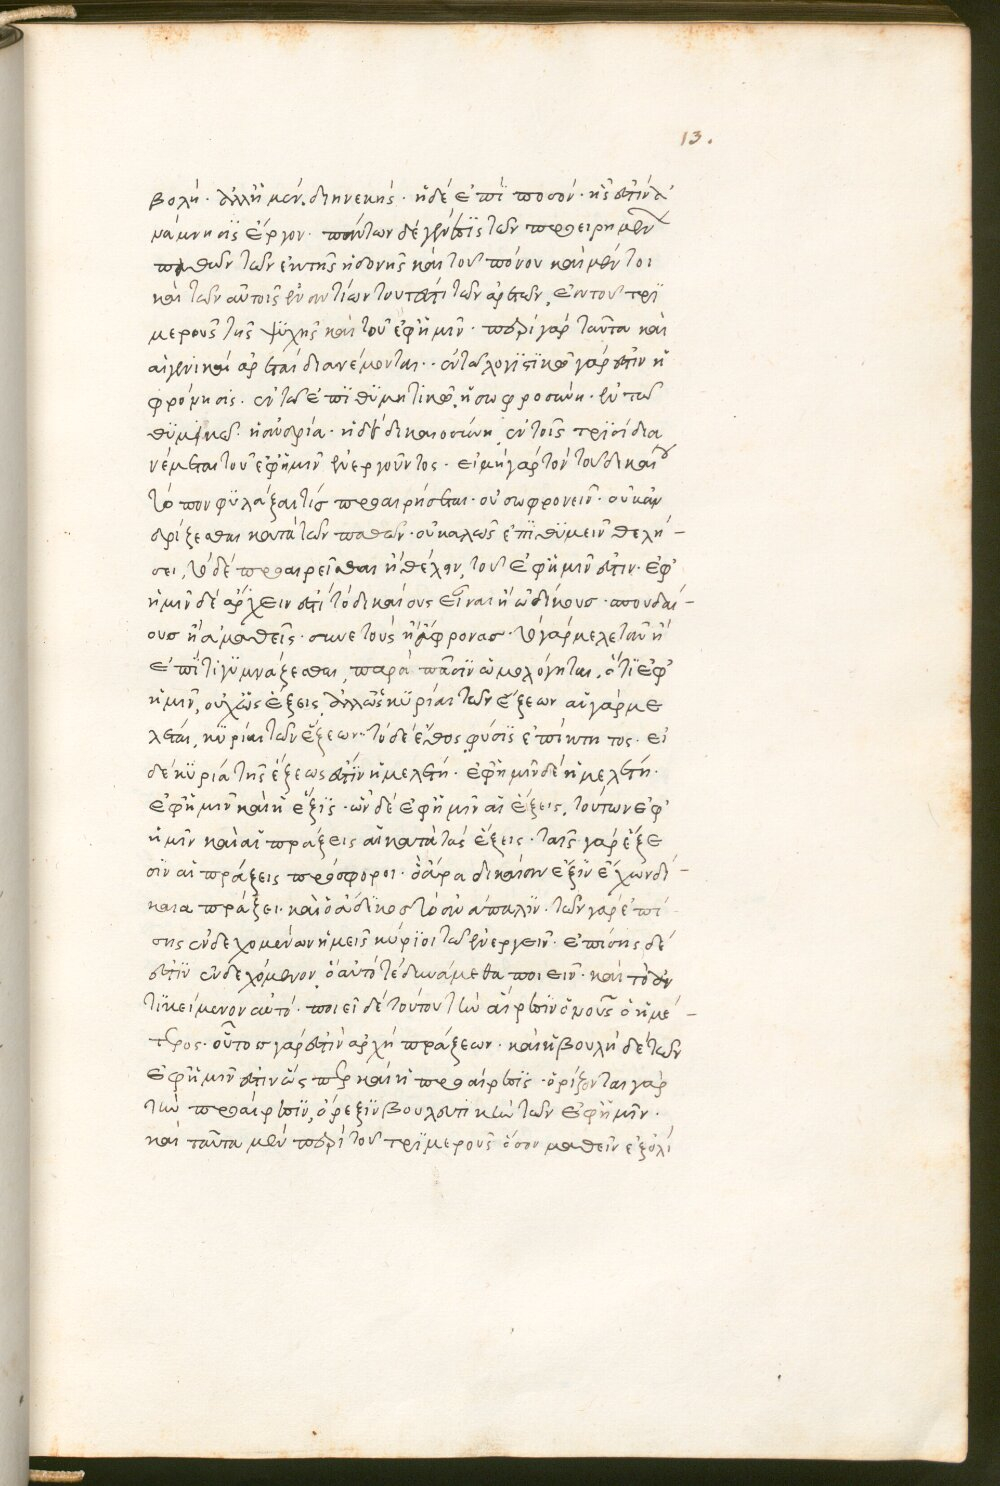 13.
βολή· ἀλλ' ἡ μέν, διηνεκής· ἡ δὲ ἐπὶ ποσόν· ἧς ἐστὶν ἀ
νάμνησις ἔργον· πάντων δὲ γένεσις τῶν προειρημένων
παθῶν τῶν ἐκ τῆς ἡδονῆς καὶ τοῦ πόνου καὶ μέντοι
καὶ τῶν αὐτοῖς ἐναντίων τουτέστι τῶν ἀρετῶν, ἐκ τοῦ τρι
μεροῦς τῆς ψυχῆς καὶ τοῦ ἐφ' ἡμῖν· περὶ γὰρ ταῦτα καὶ
αἱ γενικαὶ ἀρεταὶ διανέμονται·· ἐν τῷ λογιστικῷ γάρ ἐστιν ἡ
φρόνησις· ἐν τῷ ἐπιθυμητικῷ, ἡ σωφροσύνη· ἐν τῷ
θυμικῷ· ἡ ἀνδρία· ἡ δὲ δικαιοσύνη ἐν τοῖς τρισὶ δια
νέμεται τοῦ ἐφ' ἡμῖν ἐνεργοῦντος· εἰ μὴ γὰρ τὸν τοῦ δικαίου
τόπον φυλάξαι τίς προαιρήσεται· οὐ σωφρονεῖν· οὐκ ἀν
δρίζεσθαι κατὰ τῶν παθῶν· οὐ καλῶς ἐπιθυμεῖν θελή–
σει, τὸ δὲ προαιρεῖσθαι ἢ θέλειν, τοῦ ἐφ' ἡμῖν ἐστιν· ἐφ'
ἡμῖν δὲ ἄρχειν ἐστὶ τὸ δικαίους εἶναι ἢ ἀδίκους· σπουδαί–
ους ἢ ἀμαθεῖς· συνετοὺς ἢ ἄφρονας· τὸ γὰρ μελετᾶν ἢ
ἐπί τι γυμνάζεσθαι, παρὰ πᾶσιν ὡμολόγηται, ὅτι ἐφ'
ἡμῖν, οὐχ ὡς ἕξεις, ἀλλ' ὡς κυρίαι τῶν ἕξεων αἱ γὰρ με
λέται, κυρίαι τῶν ἕξεων·· τὸ δὲ ἔθος φύσις ἐπίκτητος· εἰ
δὲ κυρία τῆς ἕξεως ἐστὶν ἡ μελέτη· ἐφ' ἡμῖν δὲ ἡ μελέτη·
ἐφ' ἡμῖν καὶ ἡ ἕξις· ὧν δὲ ἐφ' ἡμῖν αἱ ἕξεις, τούτων ἐφ'
ἡμῖν καὶ αἱ πράξεις αἱ κατὰ τὰς ἕξεις· ταῖς γὰρ ἕξε
σιν αἱ πράξεις πρόσφοροι· ὁ ἄρα δικαίαν ἕξιν ἔχων δί–
καια πράξει· καὶ ὁ ἄδικος τὸ ἀνάπαλιν· τῶν γὰρ ἐπί
σης ἐνδεχομένων ἡμεῖς κύριοι τῷ ἐνεργεῖν· ἐπίσης δέ
ἐστιν ἐνδεχόμενον, ὃ αὐτό τε δυνάμεθα ποιεῖν· καὶ τὸ ἀν
τικείμενον αὐτό· ποιεῖ δὲ τούτου τὴν αἵρεσιν ὁ νοῦς ὁ ἡμέ–
τερος· οὗτος γάρ ἐστιν ἀρχὴ πράξεων· καὶ ἡ βουλὴ δὲ τῶν
ἐφ' ἡμῖν ἐστιν ὥσπερ καὶ ἡ προαίρεσις· ὁρίζονται γὰρ
τὴν προαίρεσιν, ὄρεξιν βουλευτικὴν τῶν ἐφ' ἡμῖν·
καὶ ταῦτα μὲν περὶ τοῦ τριμεροῦς ὅσον μαθεῖν ἐξ ὀλί